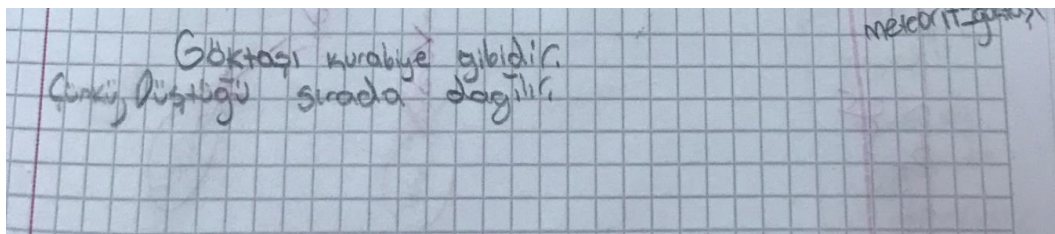 meteorit=göktaşı
Göktaşı kurabiye gibidir.
Çünkü, Düştüğü sırada dağılır.